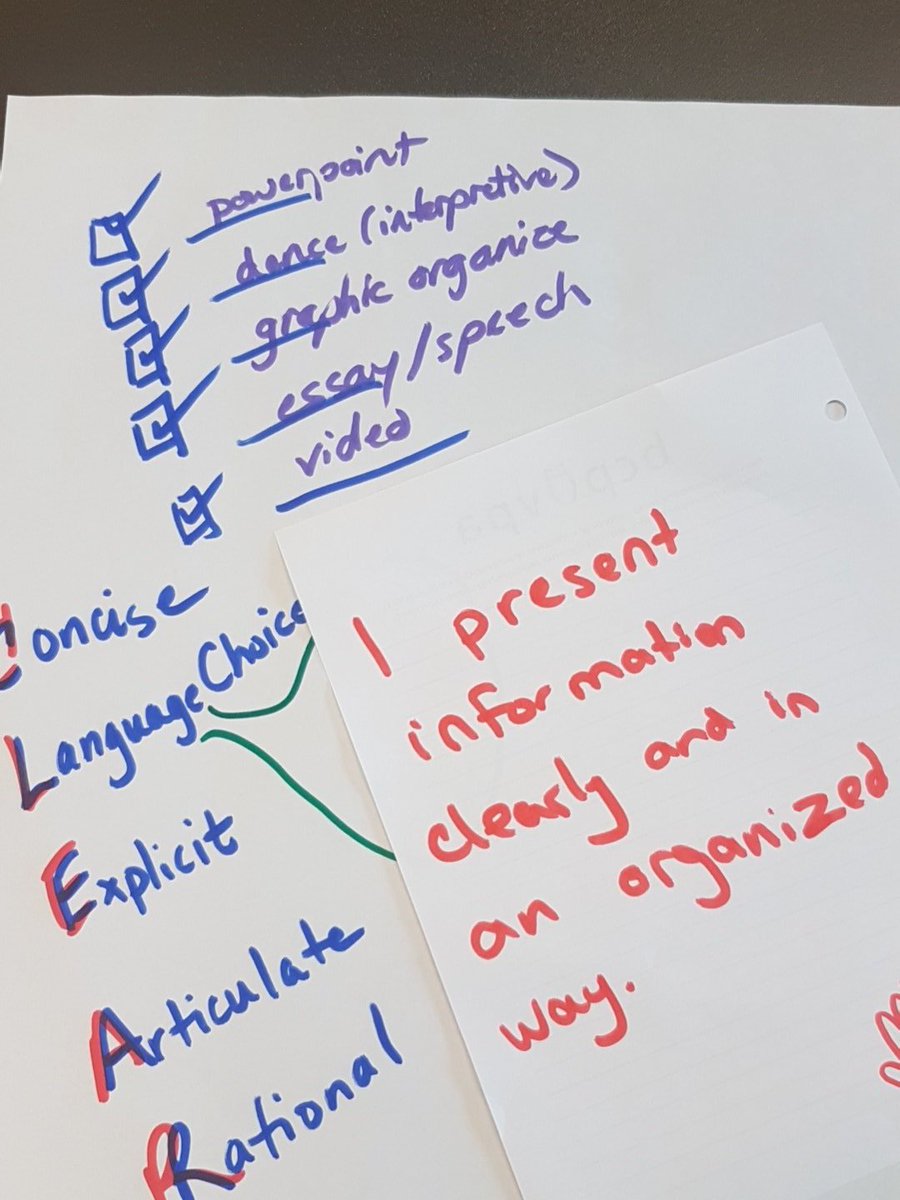 powerpoint
dance (interpretive)
graphic organize
essay/speech
video
Concise
Language Choice
Explicit
Articulate
Rational
I present
information
clearly and in
an organized
way.